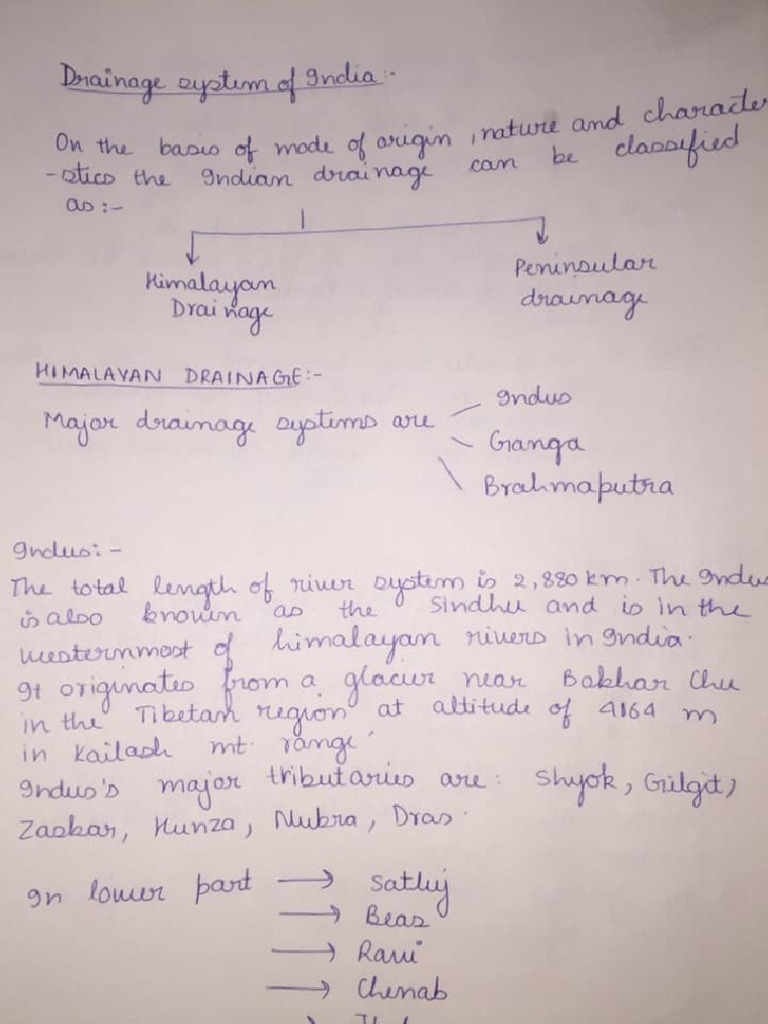 Drainage system of India :-
On the basis of mode of origin, nature and character
-stics the Indian drainage can be classified
as :-
Himalayan Drainage
Peninsular drainage
HIMALAYAN DRAINAGE:-
Major drainage systems are
Indus
Ganga
Brahmaputra
Indus:-
The total length of river system is 2,880 km. The Indus
is also known as the Sindhu and is in the
westernmost of himalayan rivers in India.
It originates from a glacier near Bokhar Chu
in the Tibetan region at altitude of 4164 m
in Kailash mt. range.
Indus's major tributaries are: Shyok, Gilgit,
Zaskar, Hunza, Nubra, Dras.
In lower part → Satluj
→ Beas
→ Ravi
→ Chenab